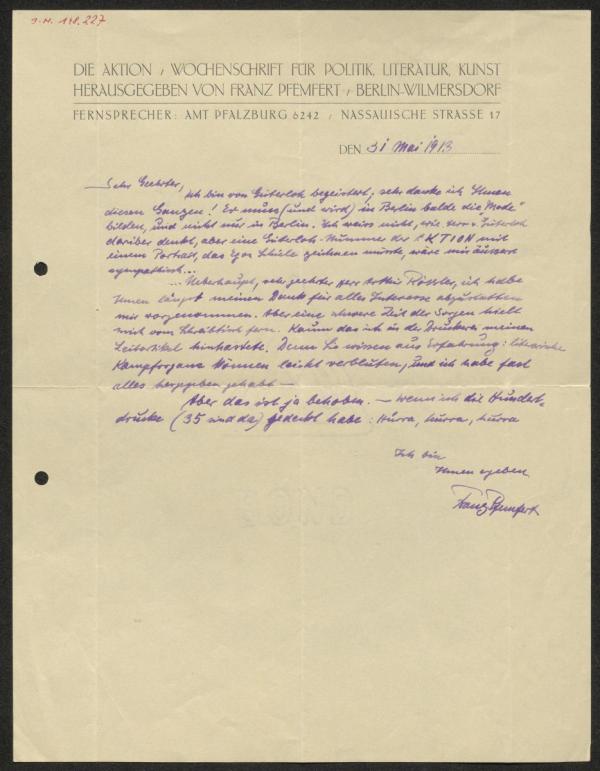 J.N. 148.227
DIE AKTION / WOCHENSCHRIFT FÜR POLITIK, LITERATUR, KUNST
HERAUSGEGEBEN VON FRANZ PFEMFERT / BERLIN-WILMERSDORF
FERNSPRECHER: AMT PFALZBURG 6242 / NASSAUISCHE STRASSE 17
DEN 31 Mai 1913
Sehr Geehrter,
ich bin von Gütersloh begeistert, sehr danke ich Ihnen
diesen Ganzen! Er muss (und wird) in Berlin balde die "Mode"
bilden, und nicht nur in Berlin. Ich weiss nicht, wie Herr v. Gütersloh
darüber denkt, aber eine Gütersloh-Nummer der AKTION mit
einem Portrait, das Egon Schiele zeichnen müsste, wäre mir äussert
sympathisch...
... Ueberhaupt, sehr geehrter Herr Arthur Rössler, ich habe
Ihnen längst meinen Dank für alles Interesse abzustatten
mir vorgenommen. Aber eine schwere Zeit der Sorgen hielt
mich vom Schreibtisch fern. Kaum das ich in der Druckerei meinen
Leitartikel hinhastete. Denn Sie wissen aus Erfahrung: literarische
Kampforgane können leicht verbluten, und ich habe fast
alles hergegeben gehabt —
Aber das ist ja behoben. — Wenn ich die Hundert-
drucke (35 sind da) gedeckt habe: Hurra, hurra, hurra
Ich bin
Ihnen ergeben
Franz Pfemfert